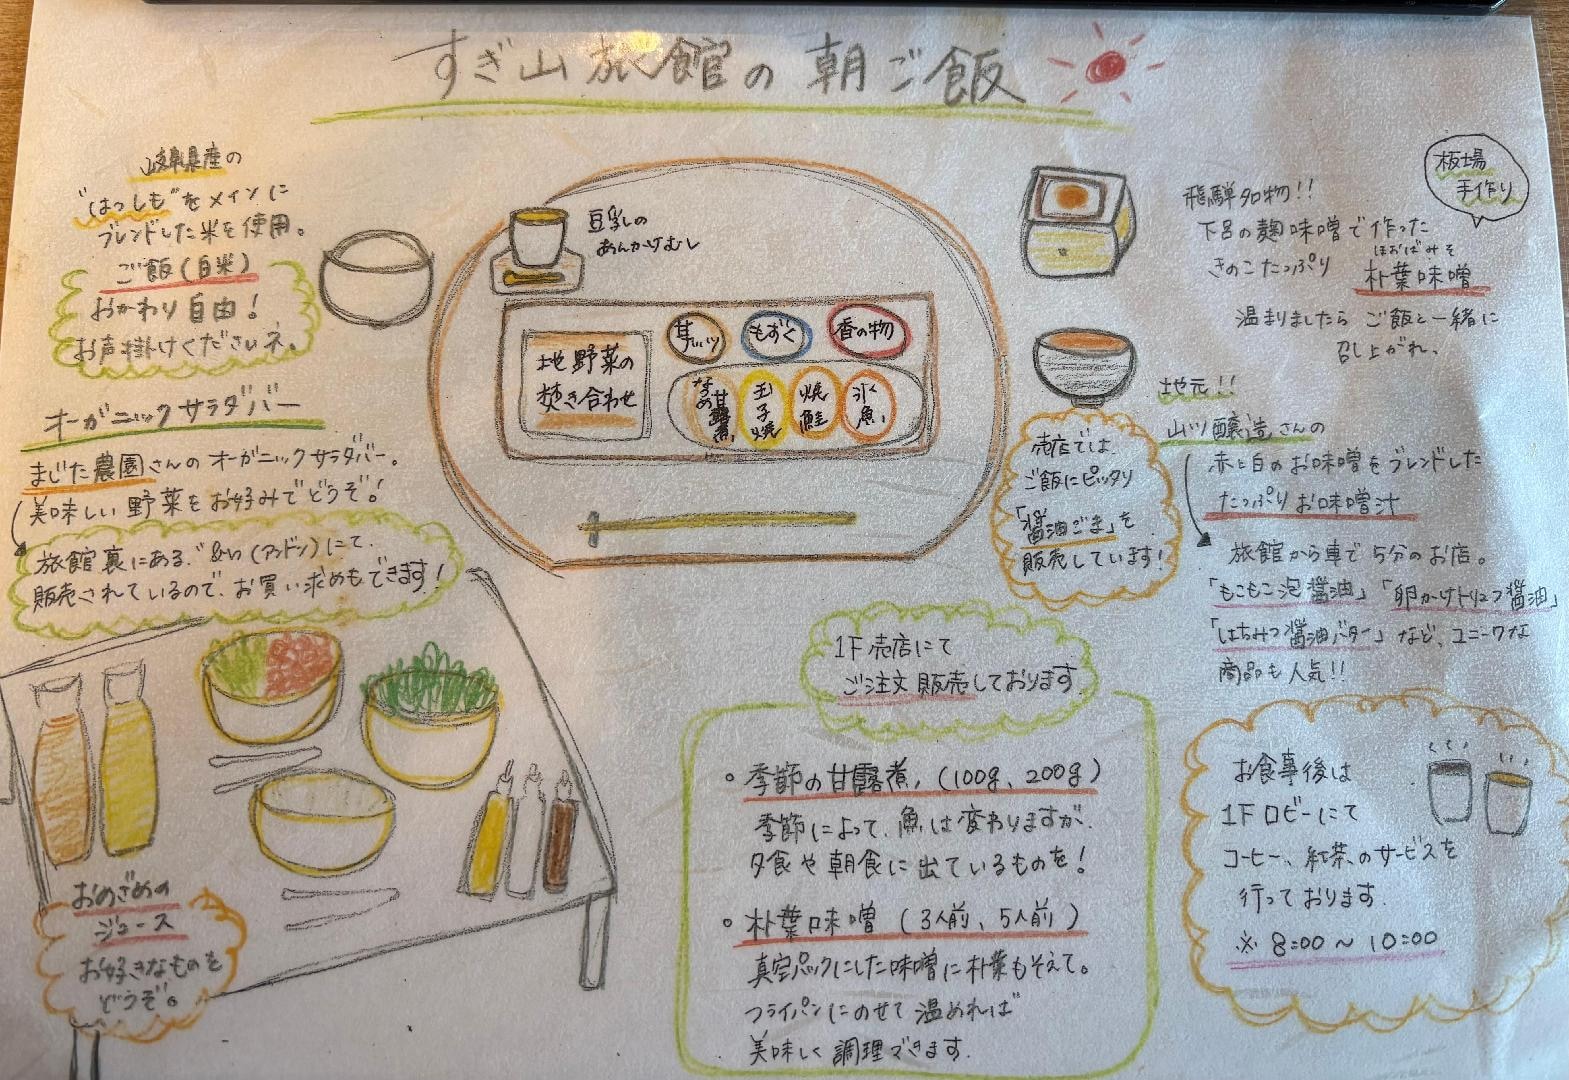 すぎ山旅館の朝ご飯
岐阜県産の
"はつしも"をメインに
ブレンドした米を使用。
ご飯(白米)
おかわり自由!
お声掛けくださいネ。
オーガニックサラダバー
まじた農園さんのオーガニックサラダバー。
美味しい野菜をお好みでどうぞ!
旅館裏にある"&n(アンドン)にて、
販売されているので、お買い求めもできます!
おめざめの
ジュース
お好きなものを
どうぞ。
豆乳の
あんかけむし
地野菜の
焚き合わせ
もずく
香の物
甘露煮
玉子焼
焼鮭
氷魚
板場
手作り
飛騨名物!!
下呂の麹味噌で作った
きのこたっぷり
ほおばみそ
朴葉味噌
温まりましたらご飯と一緒に
召し上がれ、
売店では、
ご飯にピッタリ
「醤油ごま」を
販売しています!
地元!!
山川醸造さんの
赤と白のお味噌をブレンドした
たっぷりお味噌汁
旅館から車で5分のお店。
「もこもこ泡醤油」「卵かけトリュフ醤油」
「はちみつ醤油バター」など、ユニークな
商品も人気!!
1F売店にて
ご注文販売しております。
・季節の甘露煮、(100g、200g)
季節によって、魚は変わりますが、
夕食や朝食に出ているものを!
・朴葉味噌(3人前、5人前)
真空パックにした味噌に朴葉もそえて。
フライパンにのせて温めれば
美味しく調理できます。
お食事後は
1Fロビーにて
コーヒー、紅茶のサービスを
行っております。
※8:00~10:00